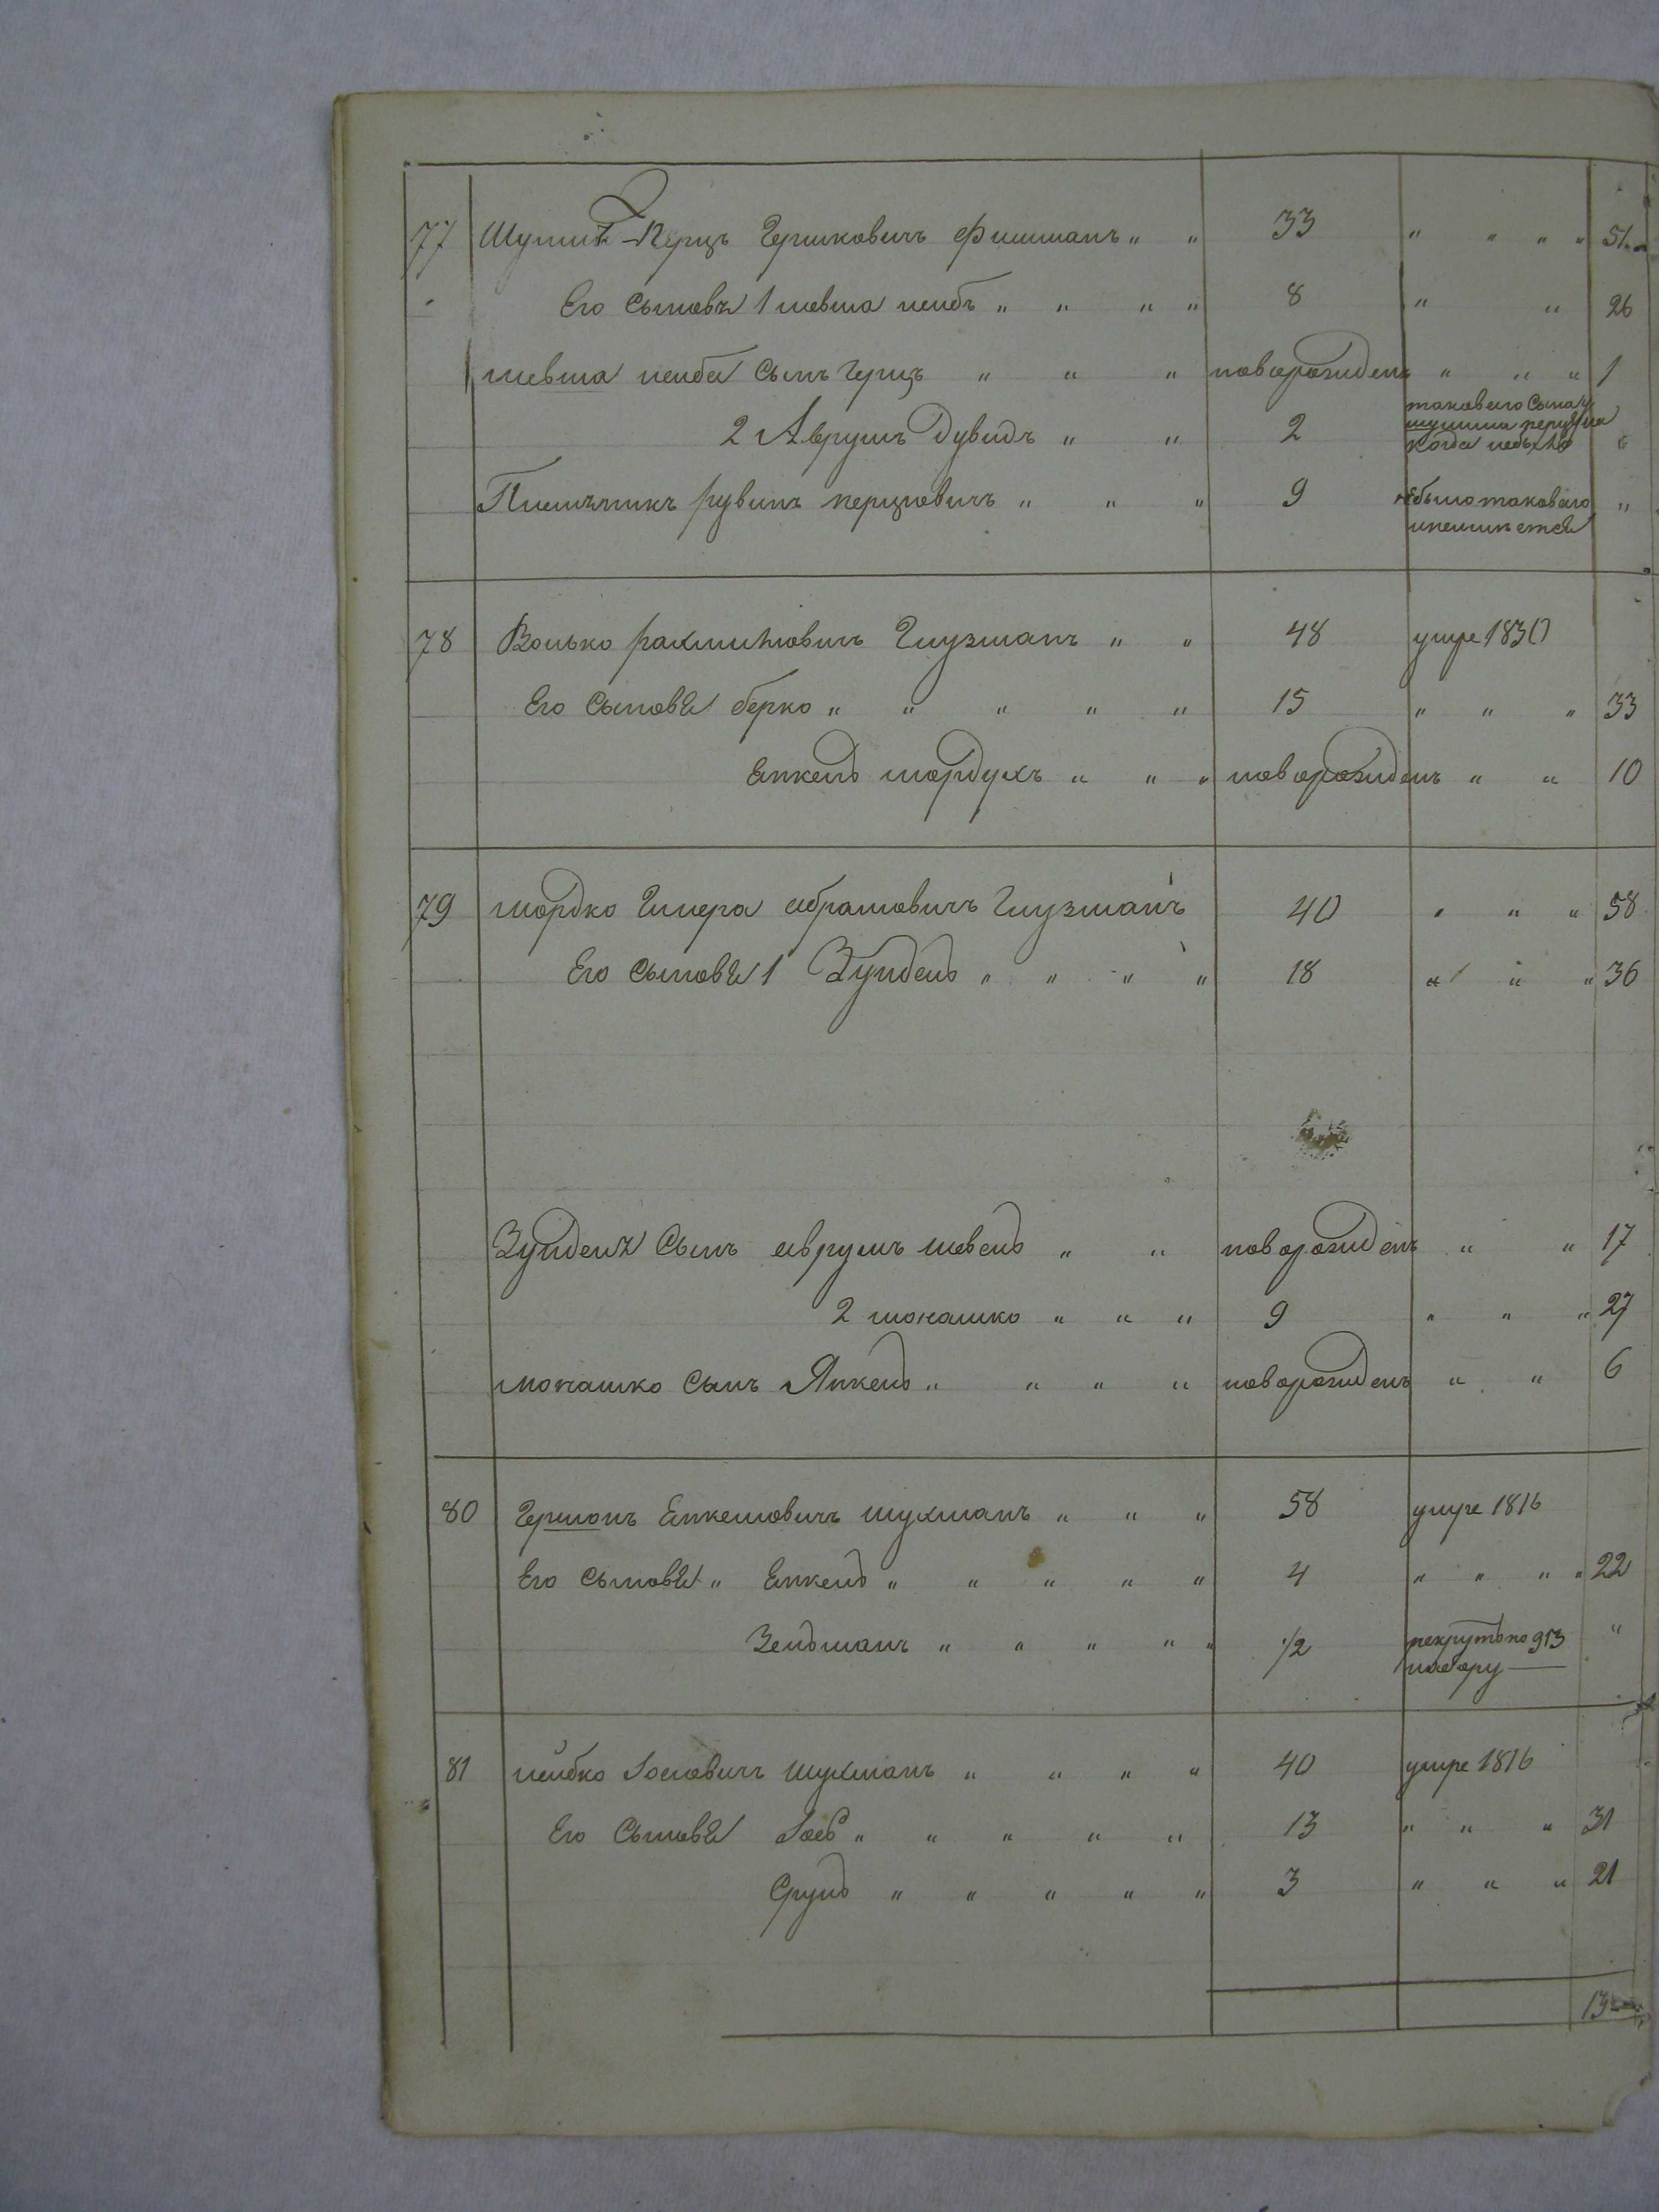 77 Шулим Перецъ Гершковичъ Фишманъ " " 33 " " " " 51
Его Сыновья 1 Мевша Лейбъ " " " " 8 " " 26
Мевша Лейба Сынъ Герцъ " " " новорожденъ " " " 1
2 Аврумъ Дувидъ " " 2 таковаго Сына у Шулима Перцуна
когда небыло "
Племянникъ Рувинъ Перцовичъ " " " 9 небыло таковаго "
78 Волько Рахмиловичъ Глузманъ " " 48 умре 1830
Его Сыновья Берко " " " " " 15 " " " 33
Янкель Мордухъ " " " новорожденъ " " 10
79 Мордко Шмера Абрамовичъ Глузманъ 40 " " " 58
Его Сыновья 1 Зундель " " " " 18 " " " 36
Зунделя Сынъ Аврумъ Мевель " " новорожденъ " " 17
2 Монашко " " " 9 " " " 27
Монашко Сынъ Янкель " " " " новорожденъ " " 6
80 Гершонъ Янкелевичъ Шухманъ " " " 58 умре 1816
Его Сыновья " Янкель " " " " " 4 " " " " 22
Зельманъ " " " " " 1/2 рекрутъ по 913 "
набору
81 Лейбко Іосевичъ Шухманъ " " " " 40 умре 1816
Его Сыновья Іось " " " " " 13 " " " 31
Сруль " " " " " 3 " " " 21
13